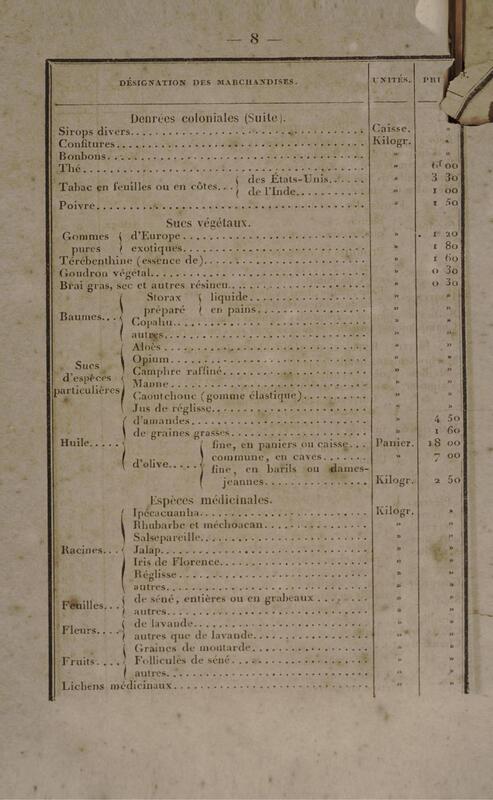 — 8 —
DÉSIGNATION DES MARCHANDISES. UNITÉS. PRI
Denrées coloniales (Suite).
Sirops divers. Caisse. "
Confitures. Kilogr. "
Bonbons. " "
Thé. " 6f 00
Tabac en feuilles ou en côtes. { des États-Unis. " 3 30
de l'Inde. " 1 00
Poivre. " 1 50
Sucs végétaux.
Gommes { d'Europe. " 1 20
pures { exotiques. " 1 80
Térébenthine (essence de). " 1 60
Goudron végétal. " 0 30
Brai gras, sec et autres résineu. " 0 30
Storax { liquide. " "
préparé { en pains. " "
Baumes. Copahu. " "
autres. " "
Aloès. " "
Opium. " "
Sucs Camphre raffiné. " "
d'espèces Manne. " "
particulières Caoutchouc (gomme élastique). " "
Jus de réglisse. " "
d'amandes. " 4 50
de graines grasses. " 1 60
Huile. fine, en paniers ou caisse. Panier. 18 00
commune, en caves. " 7 00
d'olive. fine, en barils ou dames-
jeannes. Kilogr. 2 50
Espèces médicinales.
Ipécacuanha. Kilogr. "
Rhubarbe et méchoacan. " "
Salsepareille. " "
Racines. Jalap. " "
Iris de Florence. " "
Réglisse. " "
autres. " "
de séné, entières ou en grabeaux. " "
Feuilles. autres. " "
de lavande. " "
Fleurs. autres que de lavande. " "
Graines de moutarde. " "
Fruits. Follicules de séné. " "
autres. " "
Lichens médicinaux. " "